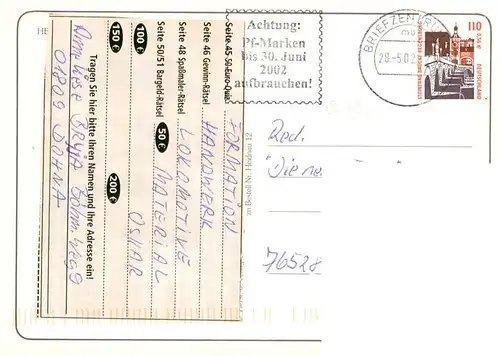 Achtung:
Pf-Marken
bis 30. Juni
2002
aufbrauchen!
BRIEFZENTRUM
mb
28.-5.02
110
0,56 €
DEUTSCHLAND
Red.
"Die ne
76528
zu Bestell-Nr.
12
HE
Seite 45 50-Euro-Quiz
FORMATION
Seite 46 Gewinn-Rätsel
HANDWERK
Seite 48 Spaßmaler-Rätsel
LOKOMOTIVE
Seite 50/51 Bargeld-Rätsel
50 €
MATERIAL
100 €
OSKAR
150 €
200 €
Tragen Sie hier bitte Ihren Namen und Ihre Adresse ein!
01809 DOHNA